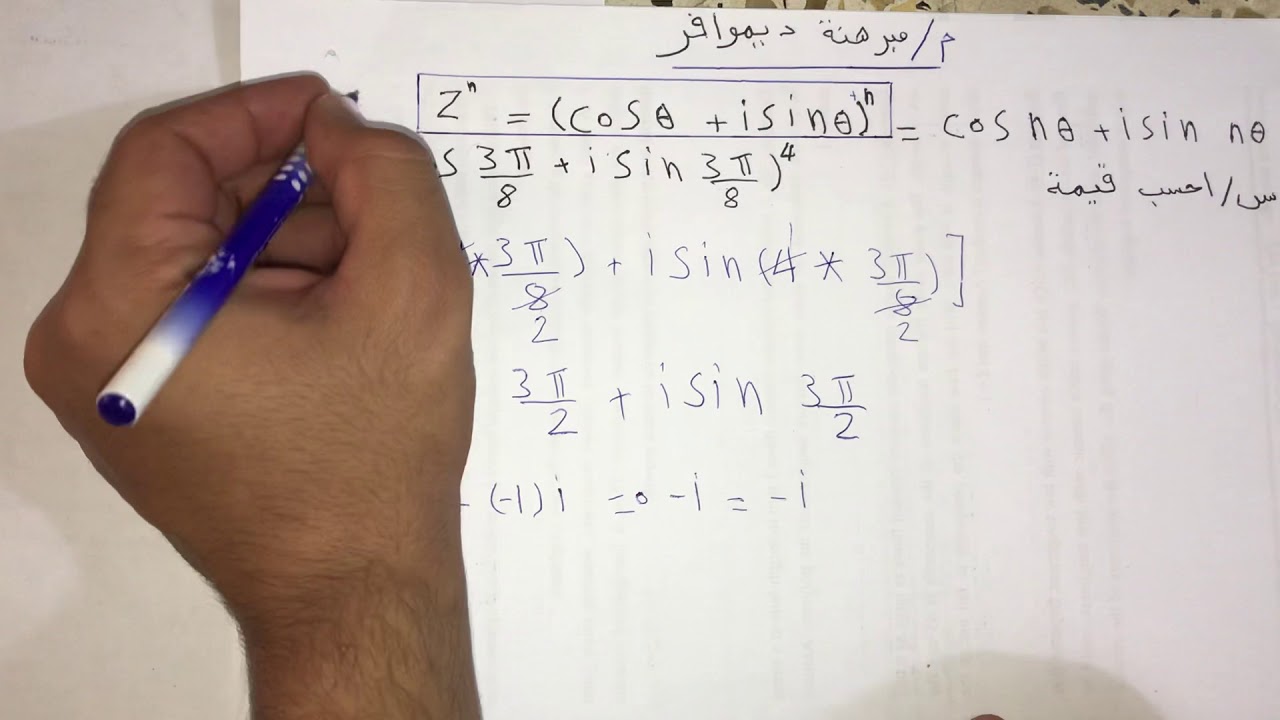 م/ مبرهنة ديموافر
Zⁿ = (cosθ + isinθ)ⁿ = cos nθ + isin nθ
س/ احسب قيمة
s 3π/8 + i sin 3π/8)⁴
* 3π/8 2) + i sin(4 1 * 3π/8 2)]
3π/2 + i sin 3π/2
(-1)i = 0 - i = -i